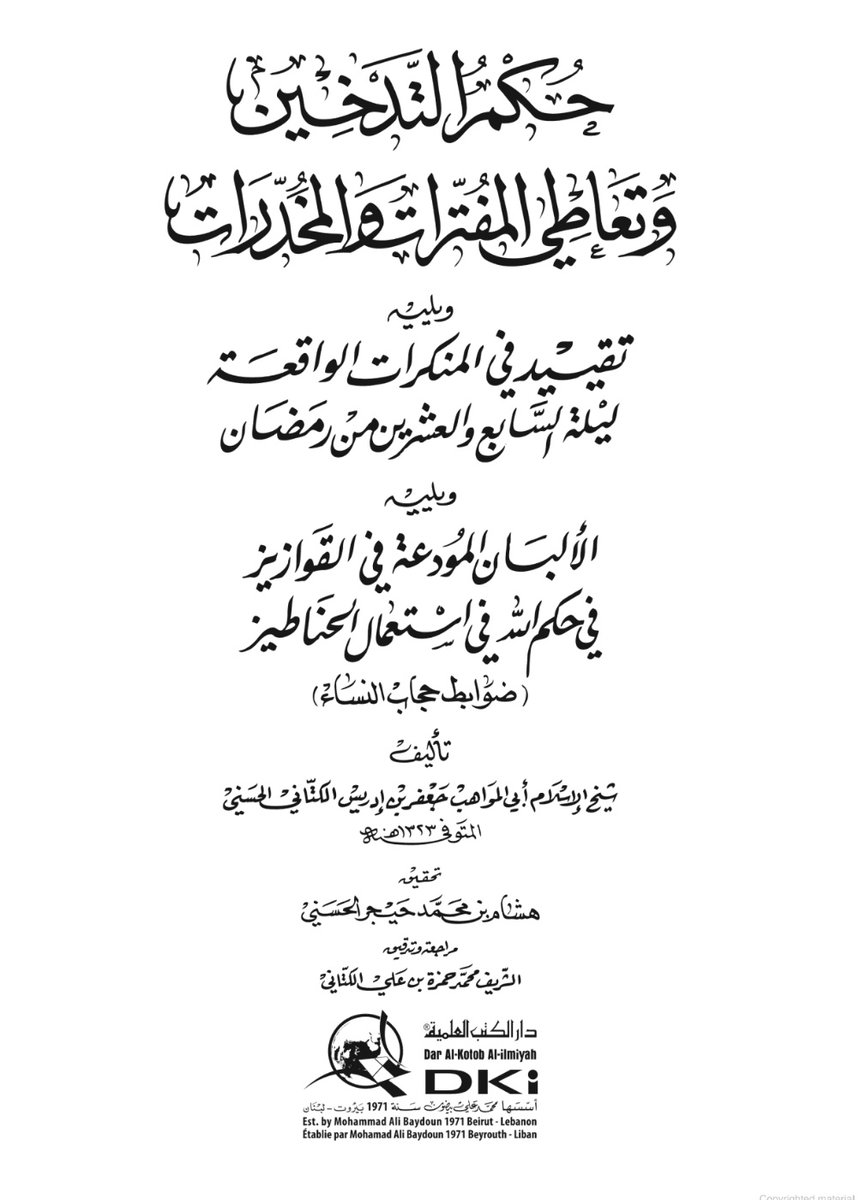 حُكْمُ التَّدْخِين
وَتَعَاطِي المُفَتِّرَات وَالمُخَدِّرَات
ويليه
تقييد في المنكرات الواقعة
ليْلة السَّابع والعشرين من رمَضَان
ويليه
الألبَان المُودعة في القَوازيز
في حكم الله في استعمال الحنَاطيز
(ضوَابط حجاب النسَاء)
تأليف
شيخ الإسلام أبي المواهب جَعْفر بن إدريس الكتّاني الحسَني
المتَوفى ١٣٢٣ هنة
تحقيق
هشام بن محمَّد حيجر الحسَني
مراجعة وتدقيق
الشّريف محمّد حمزة بن علي الكتّاني
دار الكتب العلمية®
Dar Al-Kotob Al-ilmiyah
DKi
أسسها محمد علي بيضون سنة 1971 بيروت - لبنان
Est. by Mohammad Ali Baydoun 1971 Beirut - Lebanon
Établie par Mohamad Ali Baydoun 1971 Beyrouth - Liban
Copyrighted material